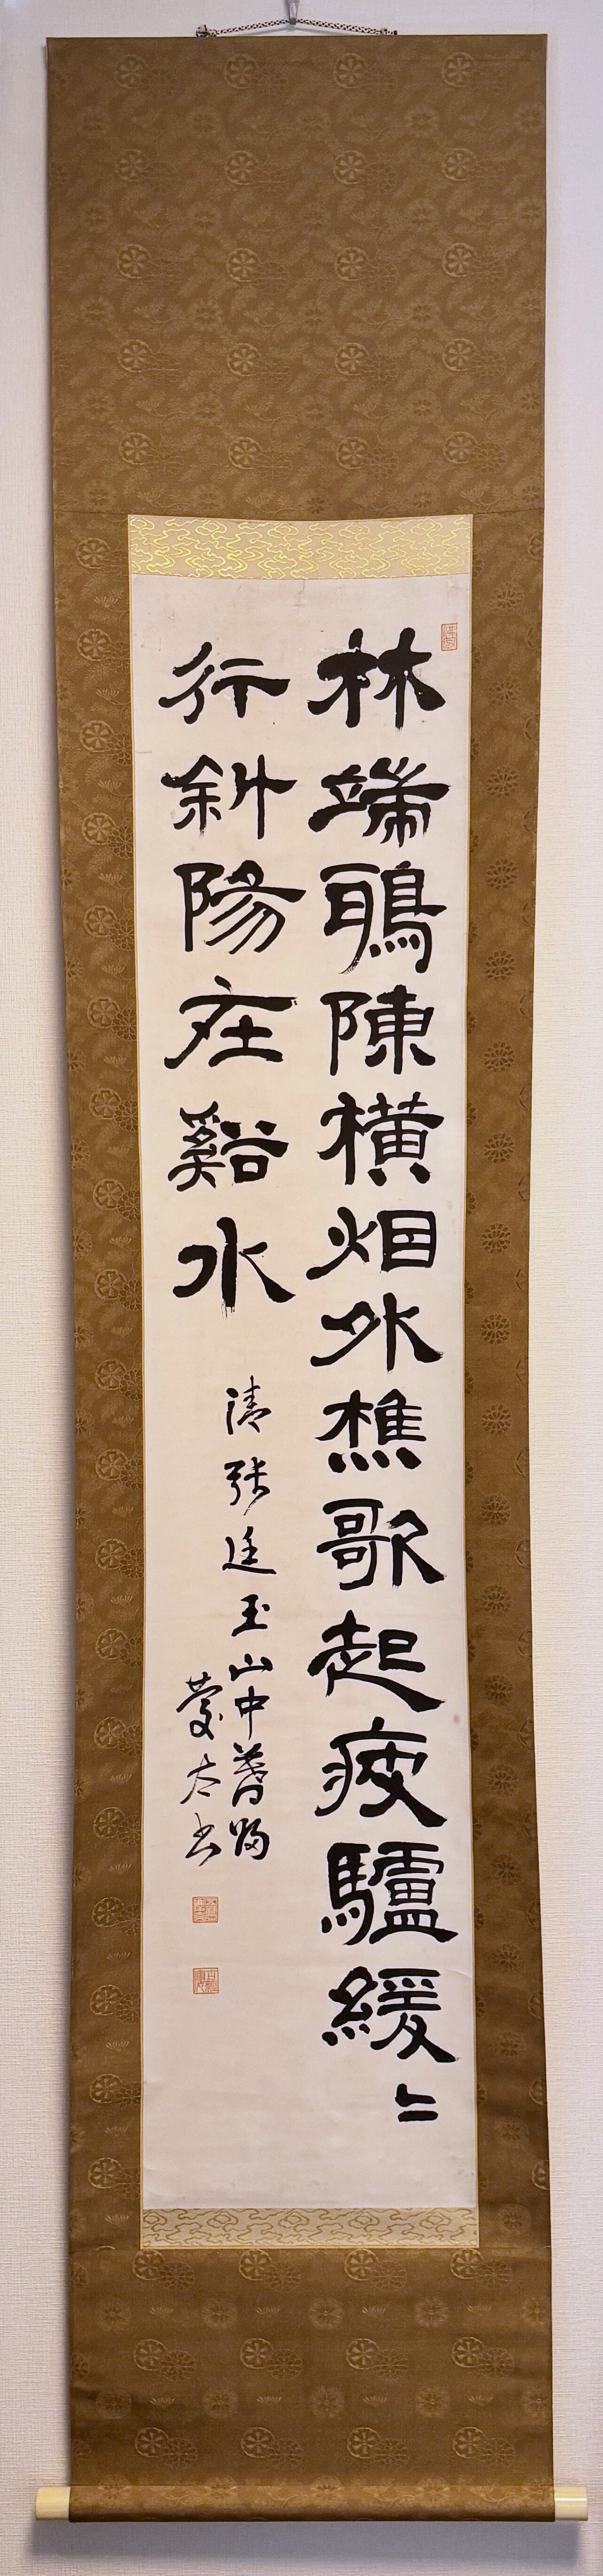 林端鴉陳橫烟外樵歌起疲驢緩〻
行斜陽在谿水
清張廷玉山中暮歸
太書